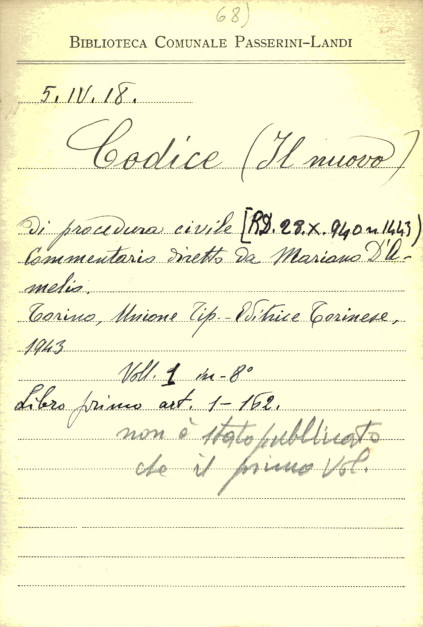 68)
BIBLIOTECA COMUNALE PASSERINI-LANDI
5. IV. 18.
Codice (Il nuovo)
di procedura civile [R.D. 28.X.940 n 1443)
Commentario diretto da Mariano D'A-
melio.
Torino, Unione Tip.-Editrice Torinese,
1943
Voll. 1 in-8°
Libro primo art. 1-162.
non è stato pubblicato
che il primo Vol.